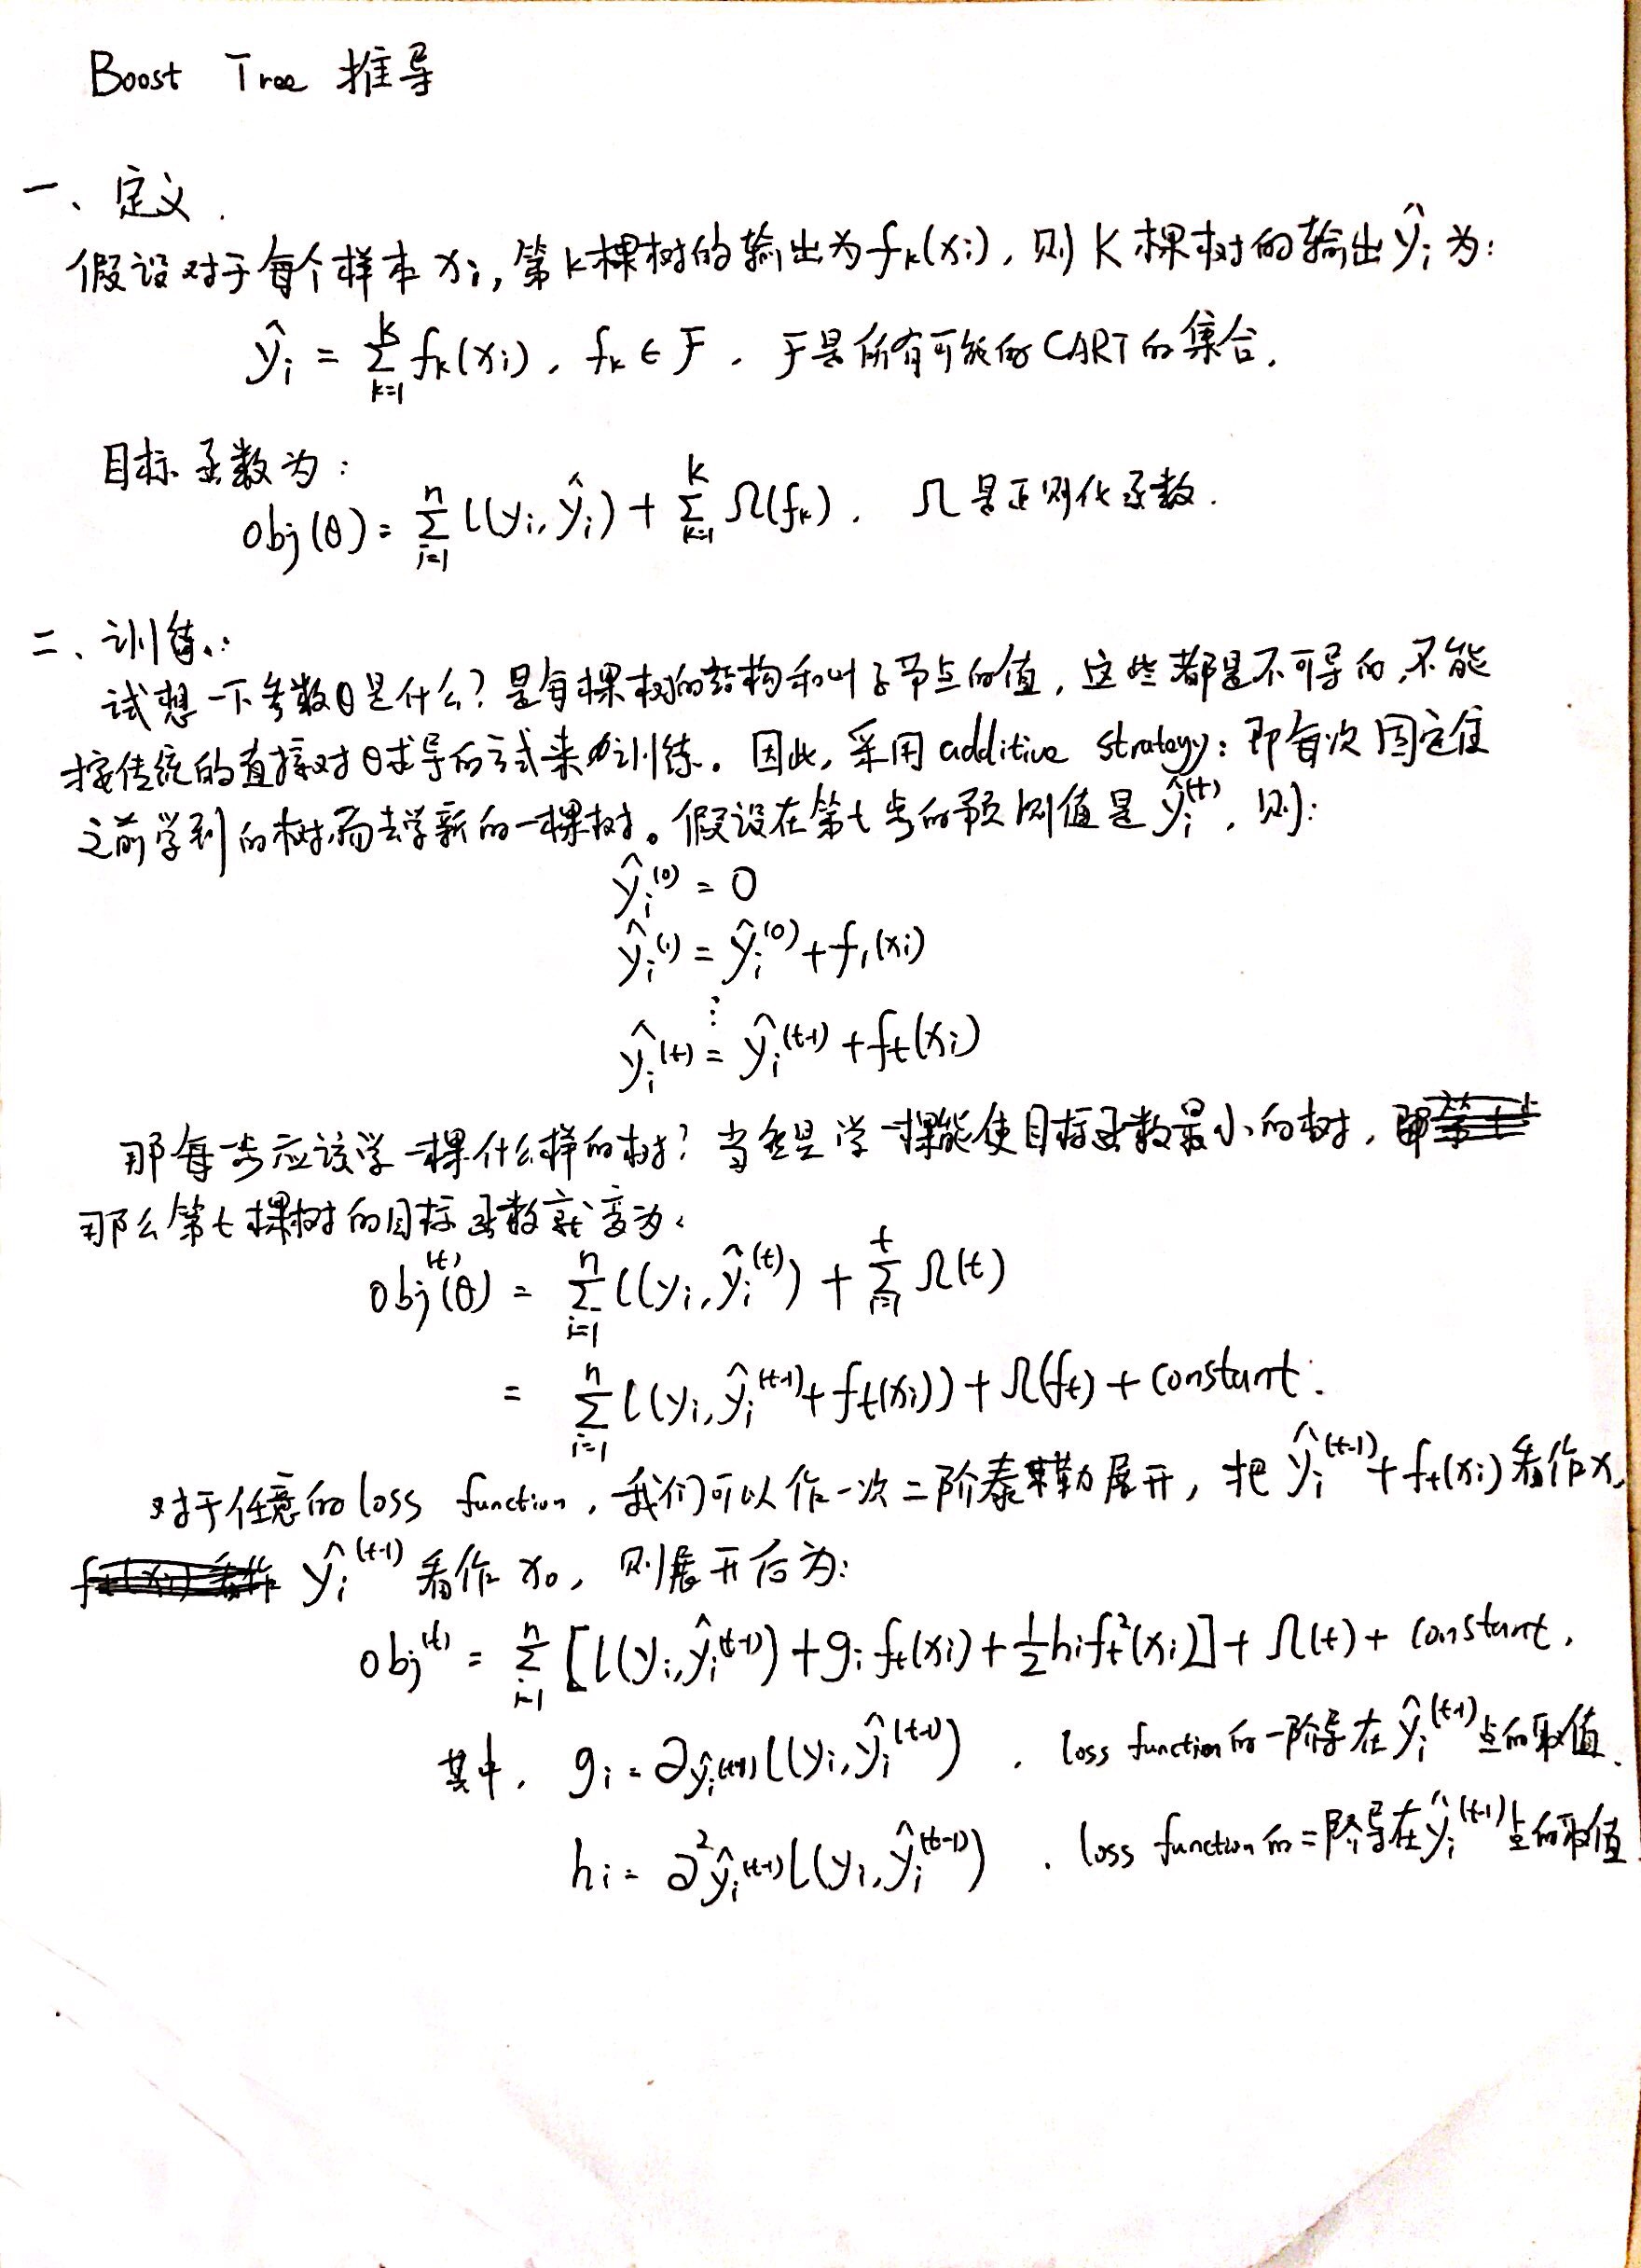 Boost Tree 推导
一、定义.
假设对于每个样本 xᵢ, 第k棵树的输出为 fₖ(xᵢ), 则 K 棵树的输出 ŷᵢ 为:
ŷᵢ = ∑_{k=1}^{K} fₖ(xᵢ), fₖ ∈ F. F是所有可能的 CART 的集合.
目标函数为:
obj(θ) = ∑_{i=1}^{n} l(yᵢ, ŷᵢ) + ∑_{k=1}^{K} Ω(fₖ). Ω 是正则化函数.
二、训练:
试想一下参数θ是什么? 是每棵树的结构和叶子节点的值, 这些都是不可导的, 不能
按传统的直接对θ求导的方式来训练。因此, 采用 additive strategy: 即每次固定住
之前学到的树, 而去学新的一棵树。假设在第t步的预测值是 ŷᵢ^(t), 则:
ŷᵢ^(0) = 0
ŷᵢ^(1) = ŷᵢ^(0) + f₁(xᵢ)
⋮
ŷᵢ^(t) = ŷᵢ^(t-1) + fₜ(xᵢ)
那每步应该学一棵什么样的树? 当然是学一棵能使目标函数最小的树,
那么第t棵树的目标函数就变为:
obj^(t)(θ) = ∑_{i=1}^{n} l(yᵢ, ŷᵢ^(t)) + ∑_{i=1}^{t} Ω(t)
= ∑_{i=1}^{n} l(yᵢ, ŷᵢ^(t-1) + fₜ(xᵢ)) + Ω(fₜ) + constant.
对于任意的 loss function, 我们可以作一次二阶泰勒展开, 把 ŷᵢ^(t-1) + fₜ(xᵢ) 看作 x,
ŷᵢ^(t-1) 看作 x₀, 则展开后为:
obj^(t) = ∑_{i=1}^{n} [l(yᵢ, ŷᵢ^(t-1)) + gᵢ fₜ(xᵢ) + ½ hᵢ fₜ²(xᵢ)] + Ω(t) + constant,
其中, gᵢ = ∂_{ŷᵢ^(t-1)} l(yᵢ, ŷᵢ^(t-1)). loss function 的一阶导在 ŷᵢ^(t-1) 点的取值.
hᵢ = ∂²_{ŷᵢ^(t-1)} l(yᵢ, ŷᵢ^(t-1)). loss function 的二阶导在 ŷᵢ^(t-1) 点的取值